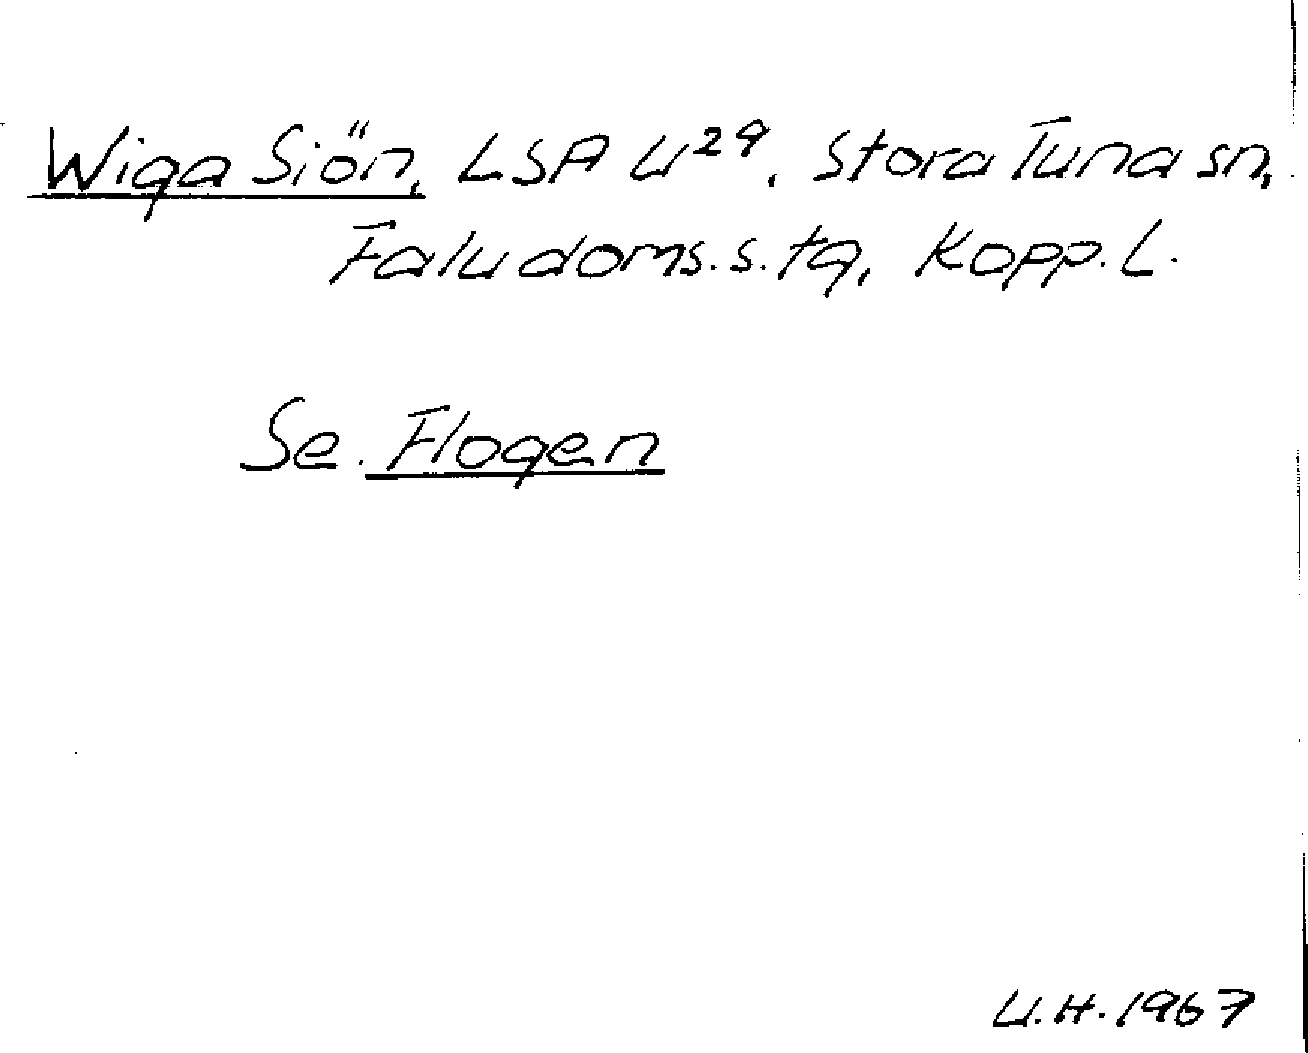 Wiga Siön, LSA U²⁹, Stora Tuna sn,
Falu doms. s. tg, Kopp. L.
Se. Flogen
U.H. 1967